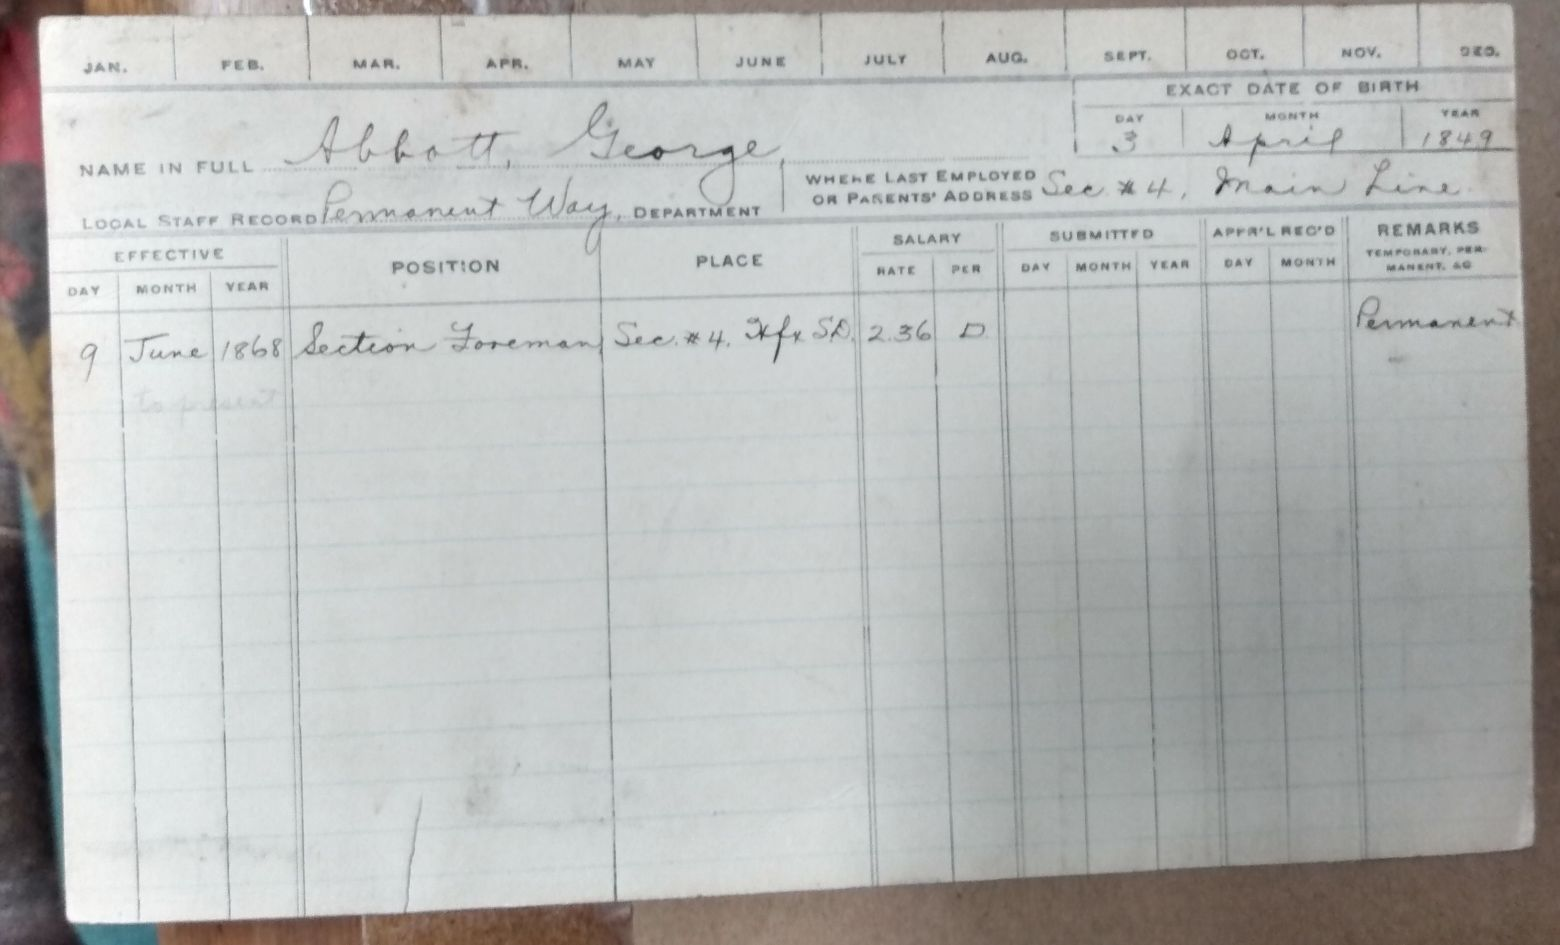 JAN. FEB. MAR. APR. MAY JUNE JULY AUG. SEPT. OCT. NOV. DEC.
EXACT DATE OF BIRTH
DAY MONTH YEAR
3 April 1849
NAME IN FULL Abbott, George,
WHERE LAST EMPLOYED OR PARENTS' ADDRESS Sec. #4, Main Line
LOCAL STAFF RECORD Permanent Way, DEPARTMENT
EFFECTIVE POSITION PLACE SALARY SUBMITTED APPR'L REC'D REMARKS
TEMPORARY, PERMANENT, &C
DAY MONTH YEAR RATE PER DAY MONTH YEAR DAY MONTH
9 June 1868 Section Foreman Sec. #4, Hfx SD. 2.36 D Permanent
to present